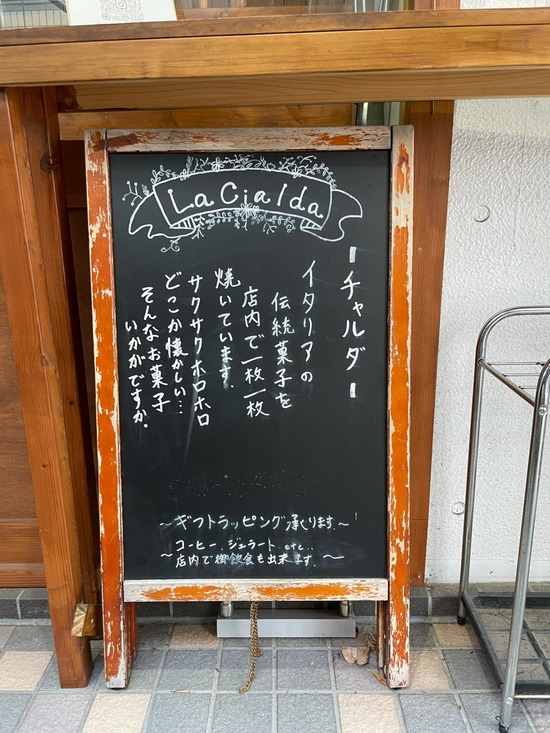 La Cialda
ーチャルダー
イタリアの
伝統菓子を
店内で一枚一枚
焼いています。
サクサクホロホロ
どこか懐かしい…
そんなお菓子
いかがですか。
～ギフトラッピング承ります。～
～コーヒー、ジェラート etc..
店内で御飲食も出来ます。～